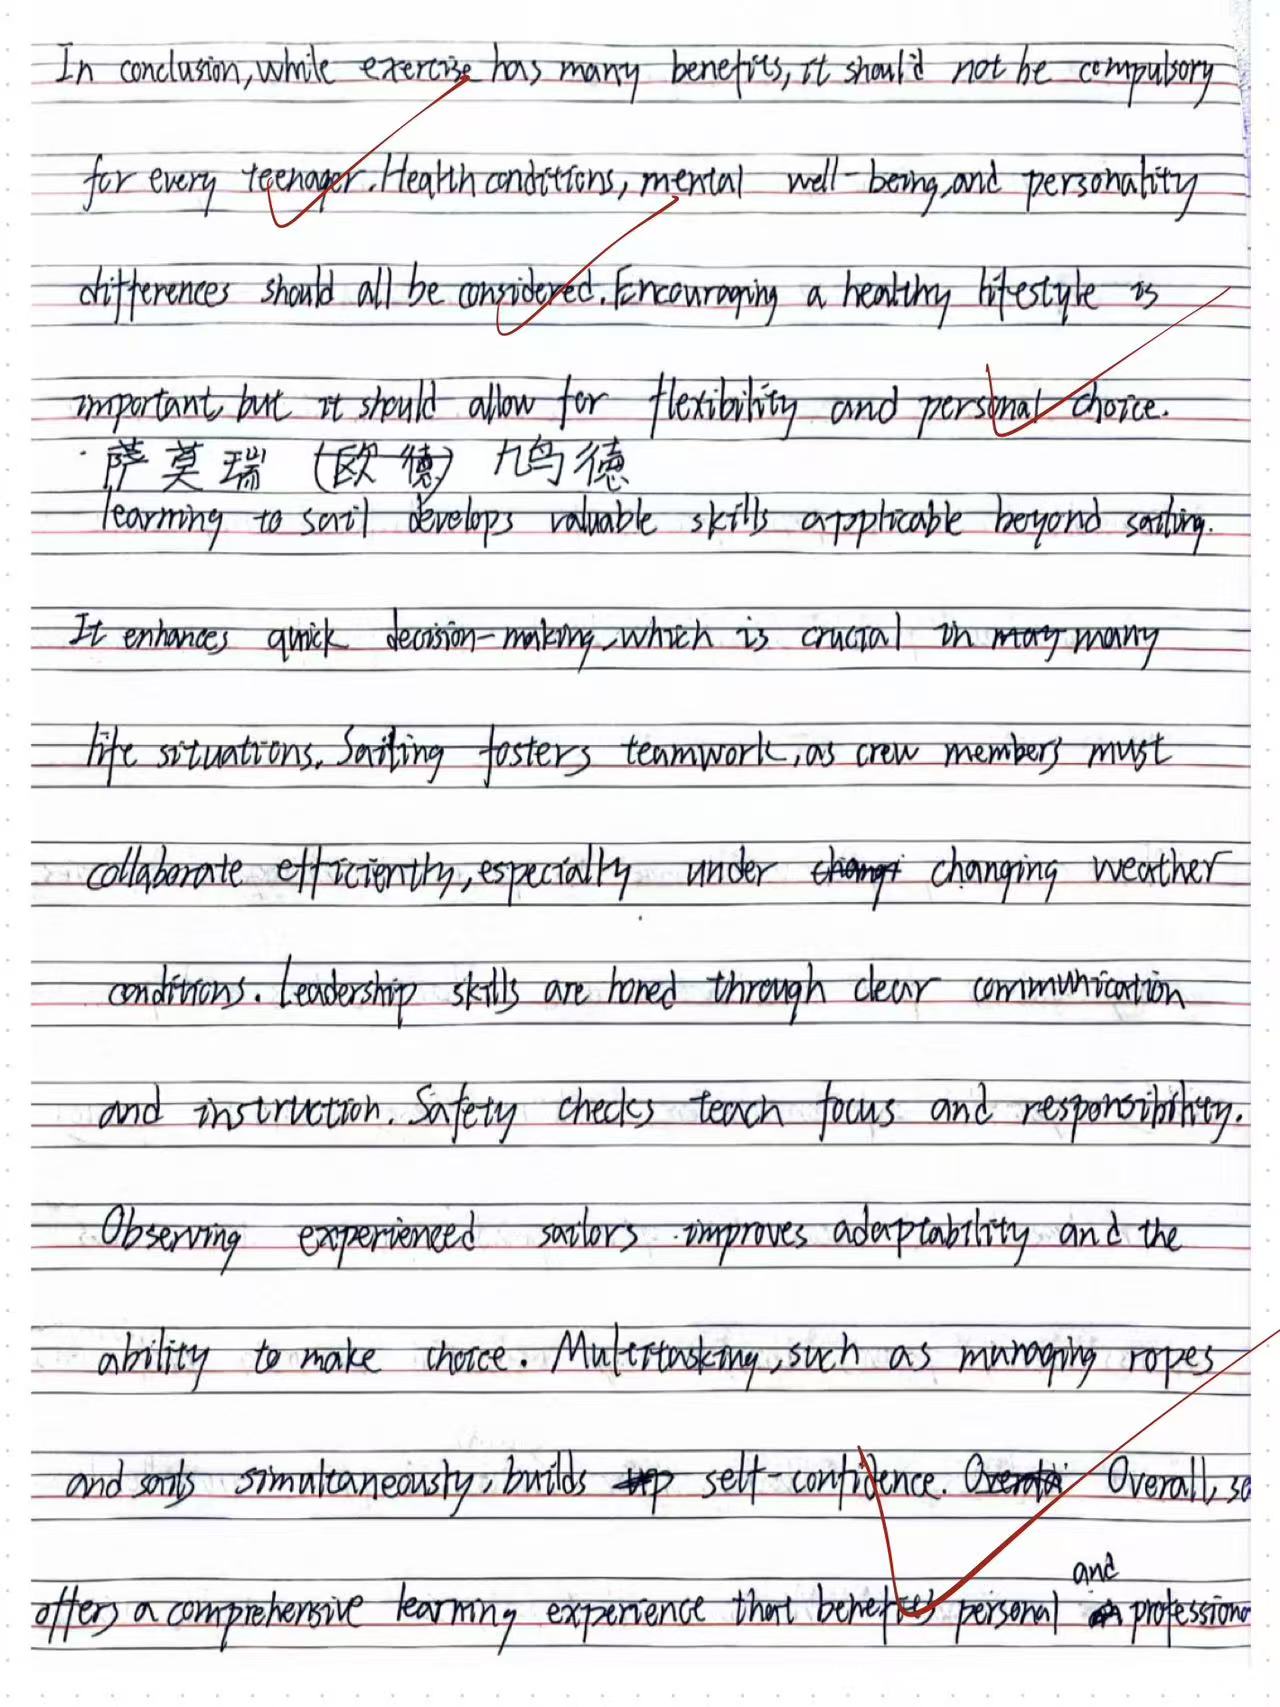 In conclusion, while exercise has many benefits, it should not be compulsory
for every teenager. Health conditions, mental well-being, and personality
differences should all be considered. Encouraging a healthy lifestyle is
important, but it should allow for flexibility and personal choice.
萨莫瑞(欧德)鸠德
learning to sail develops valuable skills applicable beyond sailing.
It enhances quick decision-making, which is crucial in may many
life situations. Sailing fosters teamwork, as crew members must
collaborate efficiently, especially under changi changing weather
conditions. Leadership skills are honed through clear communication
and instruction. Safety checks teach focus and responsibility.
Observing experienced sailors improves adaptability and the
ability to make choice. Multitasking, such as managing ropes
and sails simultaneously, builds up self-confidence. Overall, sa
and
offers a comprehensive learning experience that benefits personal professiona